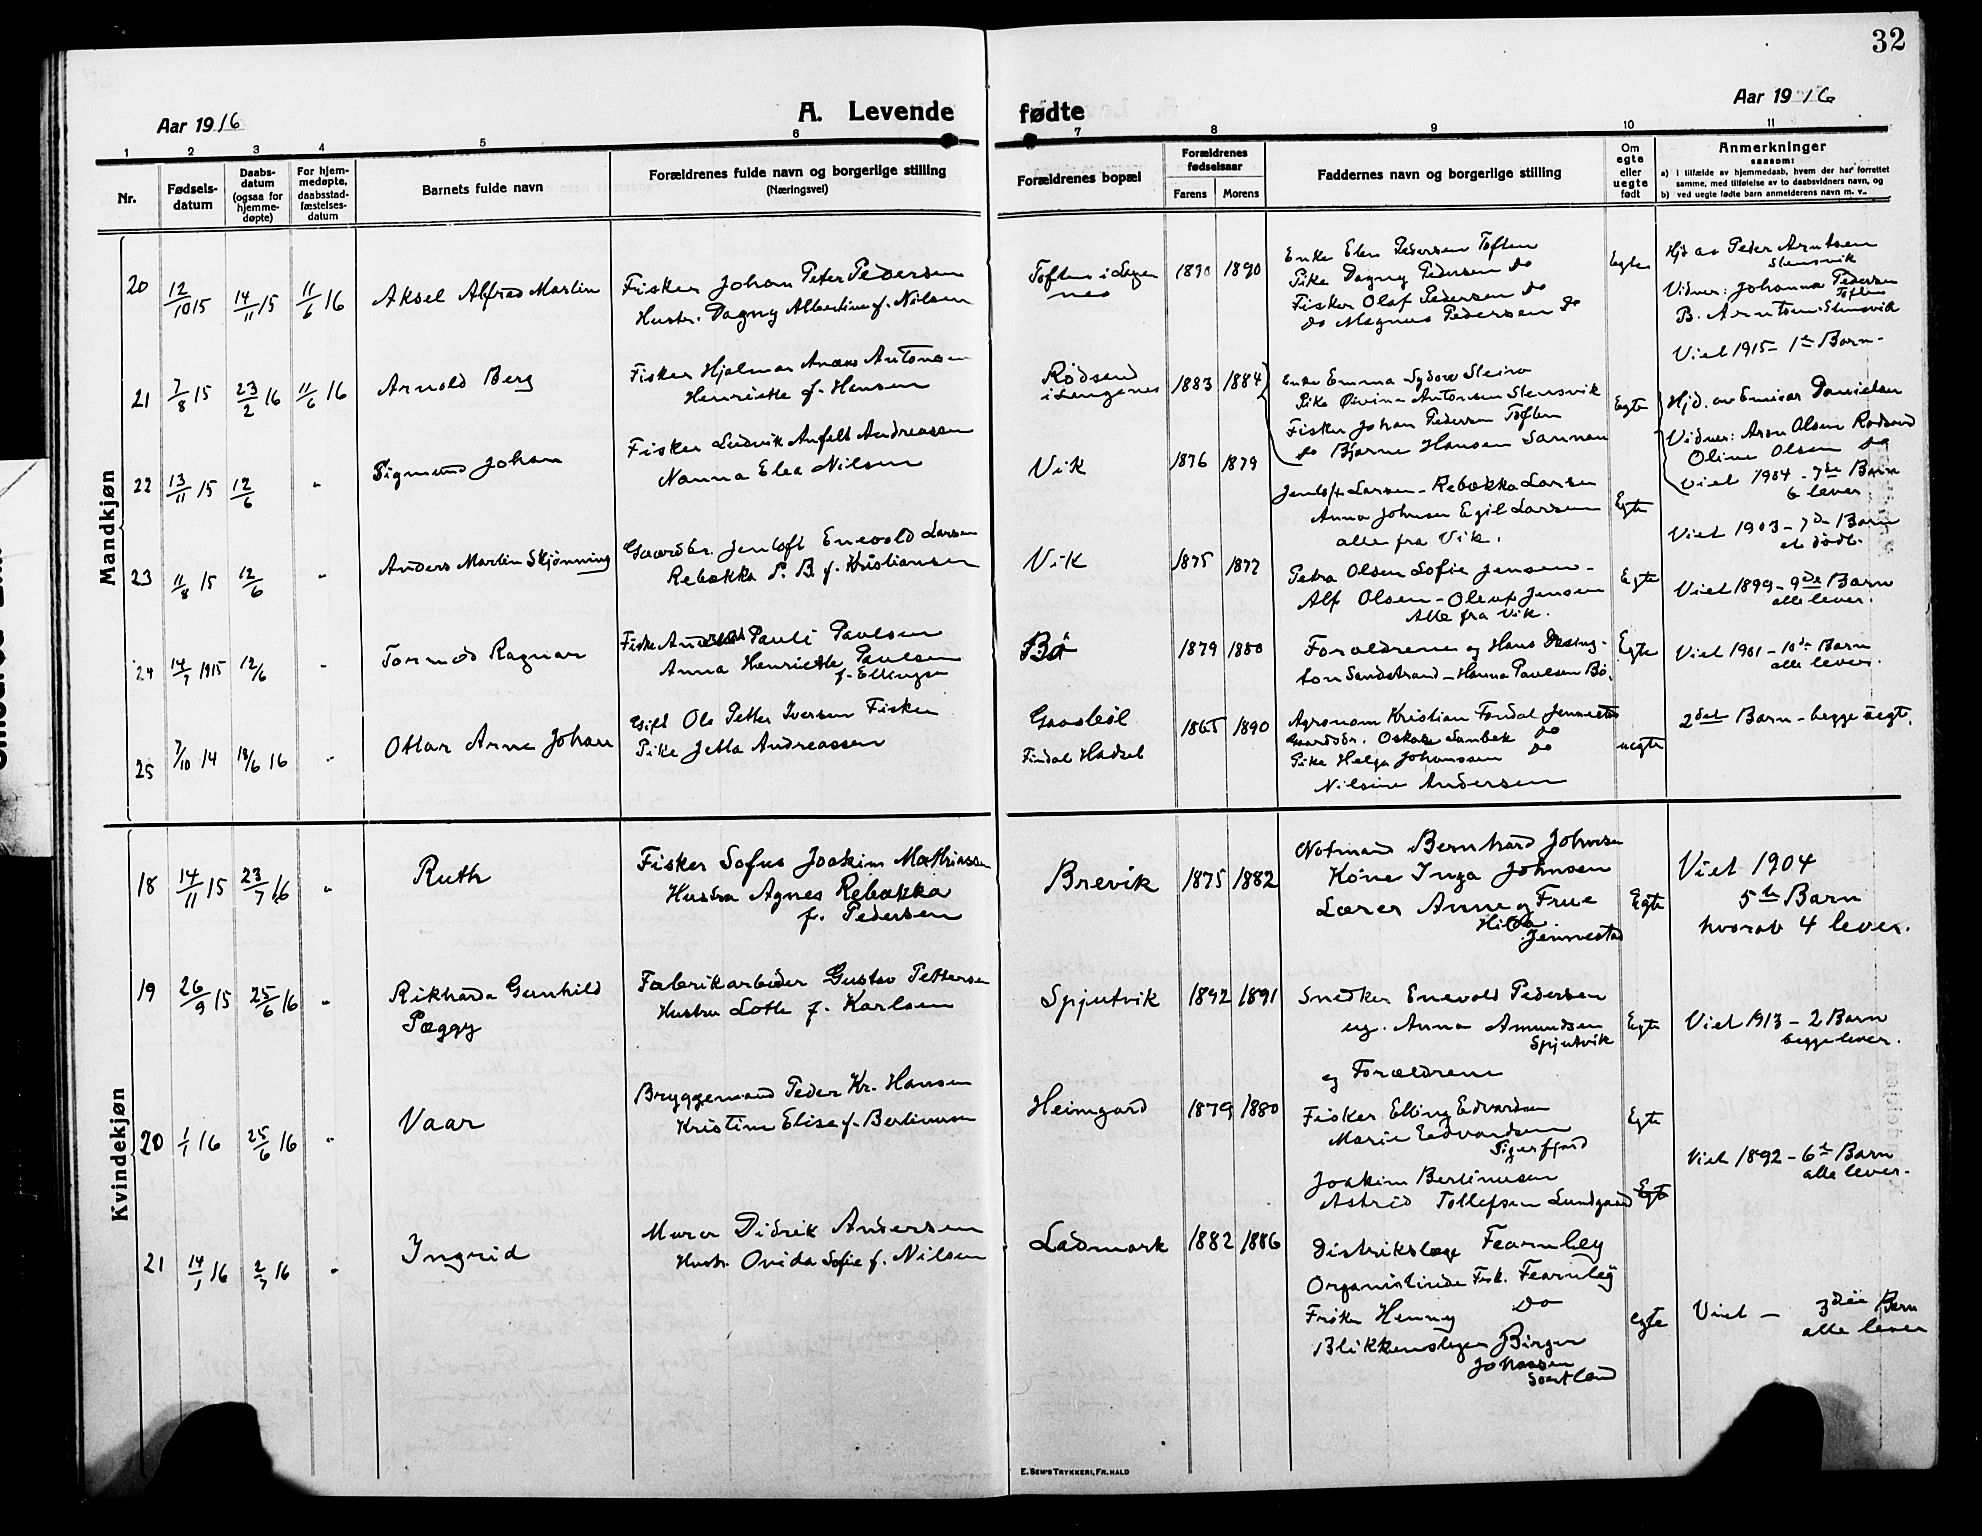 32
Aar 1916
A. Levende fødte
Aar 1916
1 2 3 4 5 6 7 8 9 10 11
Nr.
Fødsels-
datum
Daabs-
datum
(ogsaa for
hjemme-
døpte)
For hjem-
medøpte,
daabsstad-
fæstelses-
datum
Barnets fulde navn
Forældrenes fulde navn og borgerlige stilling
(Næringsvei)
Forældrenes bopæl
Forældrenes
fødselsaar
Farens Morens
Faddernes navn og borgerlige stilling
Om
egte
eller
uegte
født
Anmerkninger
saasom:
a) i tilfælde av hjemmedaab, hvem der har forrettet
samme, med tilføielse av to daabsvidners navn, og
b) ved uegte fødte barn anmelderens navn m. v.
Mandkjøn
20 12/10 15 14/11 15 11/6 16
Aksel Alfred Martin
Fisker Johan Peter Pedersen
Hustr. Dagny Albertine f. Nilsen
Toften i
1890 1890
Enke Elen Pedersen Toften
Pike Dagny Pedersen Do
Fisker Olaf Pedersen Do
Do Magnus Pedersen Do
Egte
Hjd av Peder Arntsen
Stensvik
Vidner: Johanna Pedersen
Toften
B. Arntsen Stensvik
Viet 1915 - 1te Barn -
21 7/8 15 23/2 16 11/6 16
Arnold Berg
Fisker Hjalmar Antonsen
Henriette f. Hansen
Rødsand
1883 1884
Enke Emma Steiro
Pike Øivina Antonsen Stensvik
Fisker Johan Pedersen Toften
Do Bjarne Hansen
Egte
Hjd. av Danielsen
Vidner: Aron Olsen Rødsand
Oline Olsen Do
Viet 1904 - 7de Barn
6 lever
22 13/11 15 12/6 "
Sigmund Johan
Fisker Ludvik Anfelt Andreassen
Nanna Elea Nilsen
Vik
1876 1879
Jentoft Larsen - Rebekka Larsen
Anna Johnsen Egil Larsen
alle fra Vik.
Egte
Viet 1903 - 7de Barn
et dødt.
23 11/8 15 12/6 "
Anders Martin Skjønning
Gaardbr. Jentoft Enevold Larsen
Rebekka P. B. f. Kristiansen
Vik
1875 1877
Petra Olsen Sofie Jensen -
Alf Olsen - Oluf Jensen
Alle fra Vik.
Egte
Viet 1899 - 9de Barn
alle lever.
24 14/7 1915 12/6 "
Tormod Ragnar
Pauli Paulsen
Anna Henriette Paulsen
f. Ellingsen
Bø
1879 1880
Forældrene og Hans
Sandstrand - Hanna Paulsen Bø.
Egte
Viet 1901 - 10de Barn
alle lever.
25 7/10 14 18/6 16 "
Ottar Arne Johan
Gift Ole Petter Iversen Fisker
Pike Jetta Andreassen
Gaasbøl
Hadsel
1865 1890
Agronom Kristian Jennestad
Gaardbr. Oskar Sanbæk Do
Pike Helga Johanssen Do
Nilsine Andersen
uegte
2det Barn - begge uegt.
Kvindekjøn
18 14/11 15 23/7 16 "
Ruth
Fisker Sofus Joakim Mathiassen
Hustru Agnes Rebekka
f. Pedersen
Brevik
1875 1882
Notmand Bernhard Johnsen
Kone Inga Johnsen
Lærer Anne og Frue
Hilda
Jennestad
Egte
Viet 1904
5te Barn
hvorav 4 lever.
19 26/9 15 25/6 16 "
Rikharda Gunhild
Pæggy
Fabrikarbeider Gustav Pettersen
Hustru Lotte f. Karlsen
Spjutvik
1892 1891
Snedker Enevold Pedersen
og. Anna Amundsen
Spjutvik
og Forældrene
Egte
Viet 1913 - 2 Barn
begge lever.
20 1/1 16 25/6 16 "
Vaar
Bryggemand Peder Kr. Hansen
Kristine Elise f. Bertinussen
Heimgard
1879 1880
Fisker Elling Edvardsen
Marie Edvardsen
Sigerfjord
Joakim Bertinusen
Astrid Tollefsen Lundgaard
Egte
Egte
Viet 1892 - 6te Barn
alle lever.
21 14/1 16 2/7 16 "
Ingrid
Murer Didrik Andersen
Hustr. Ovida Sofie f. Nilsen
Ladmark
1882 1886
Distrikslæge Fearnley
Organistinde Frk. Fearnley
Frøken Henny Do
Blikkenslager Birger
Johnssen
Sortland
egte
Viet - 3die Barn
alle lever
E. Sem's Trykkeri, Fr.hald